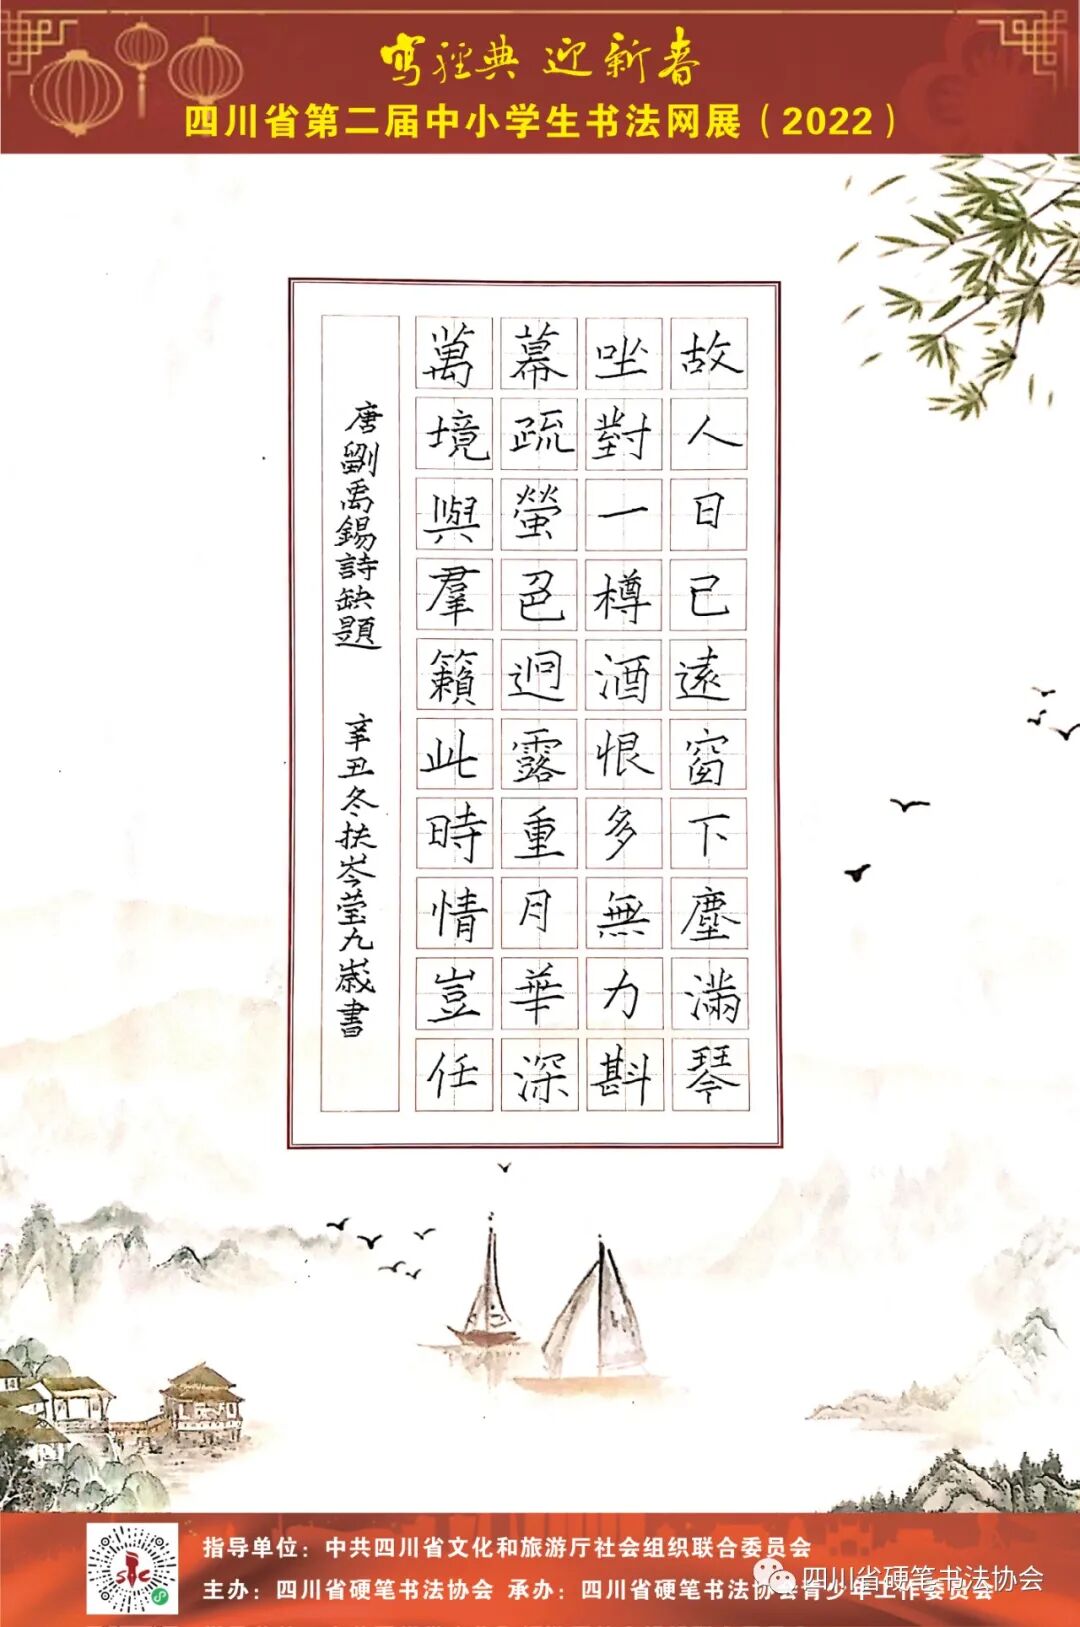 寫經典 迎新春
四川省第二届中小学生书法网展（2022）
故人日已遠窗下塵滿琴
坐對一樽酒恨多無力斟
幕疏螢色迥露重月華深
萬境與羣籟此時情豈任
唐劉禹錫詩缺題 辛丑冬扶岑莹九歲書
指导单位：中共四川省文化和旅游厅社会组织联合委员会
主办：四川省硬笔书法协会 承办：四川省硬笔书法协会青少年工作委员会
四川省硬笔书法协会